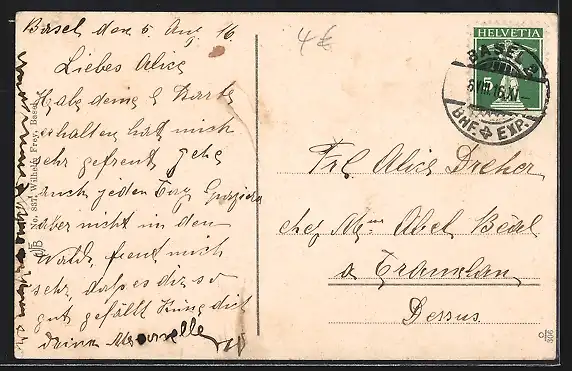 Basel den 5. Aug 16.
Liebes Alice
Habe deine l. Karte
erhalten hat mich
sehr gefreut gehe
auch jeden Tag
aber nicht in den
Wald, freut mich
sehr, dass es dir so
gut gefällt
deine Marcelle
No. 837, Wilhelm Frey, Basel
4 €
HELVETIA
5
BASEL 2
5.VIII.16.XI
BHF. EXP.
Frl Alice Dreher
chez Mme Abel Béal
a Tramelan
Dessus.